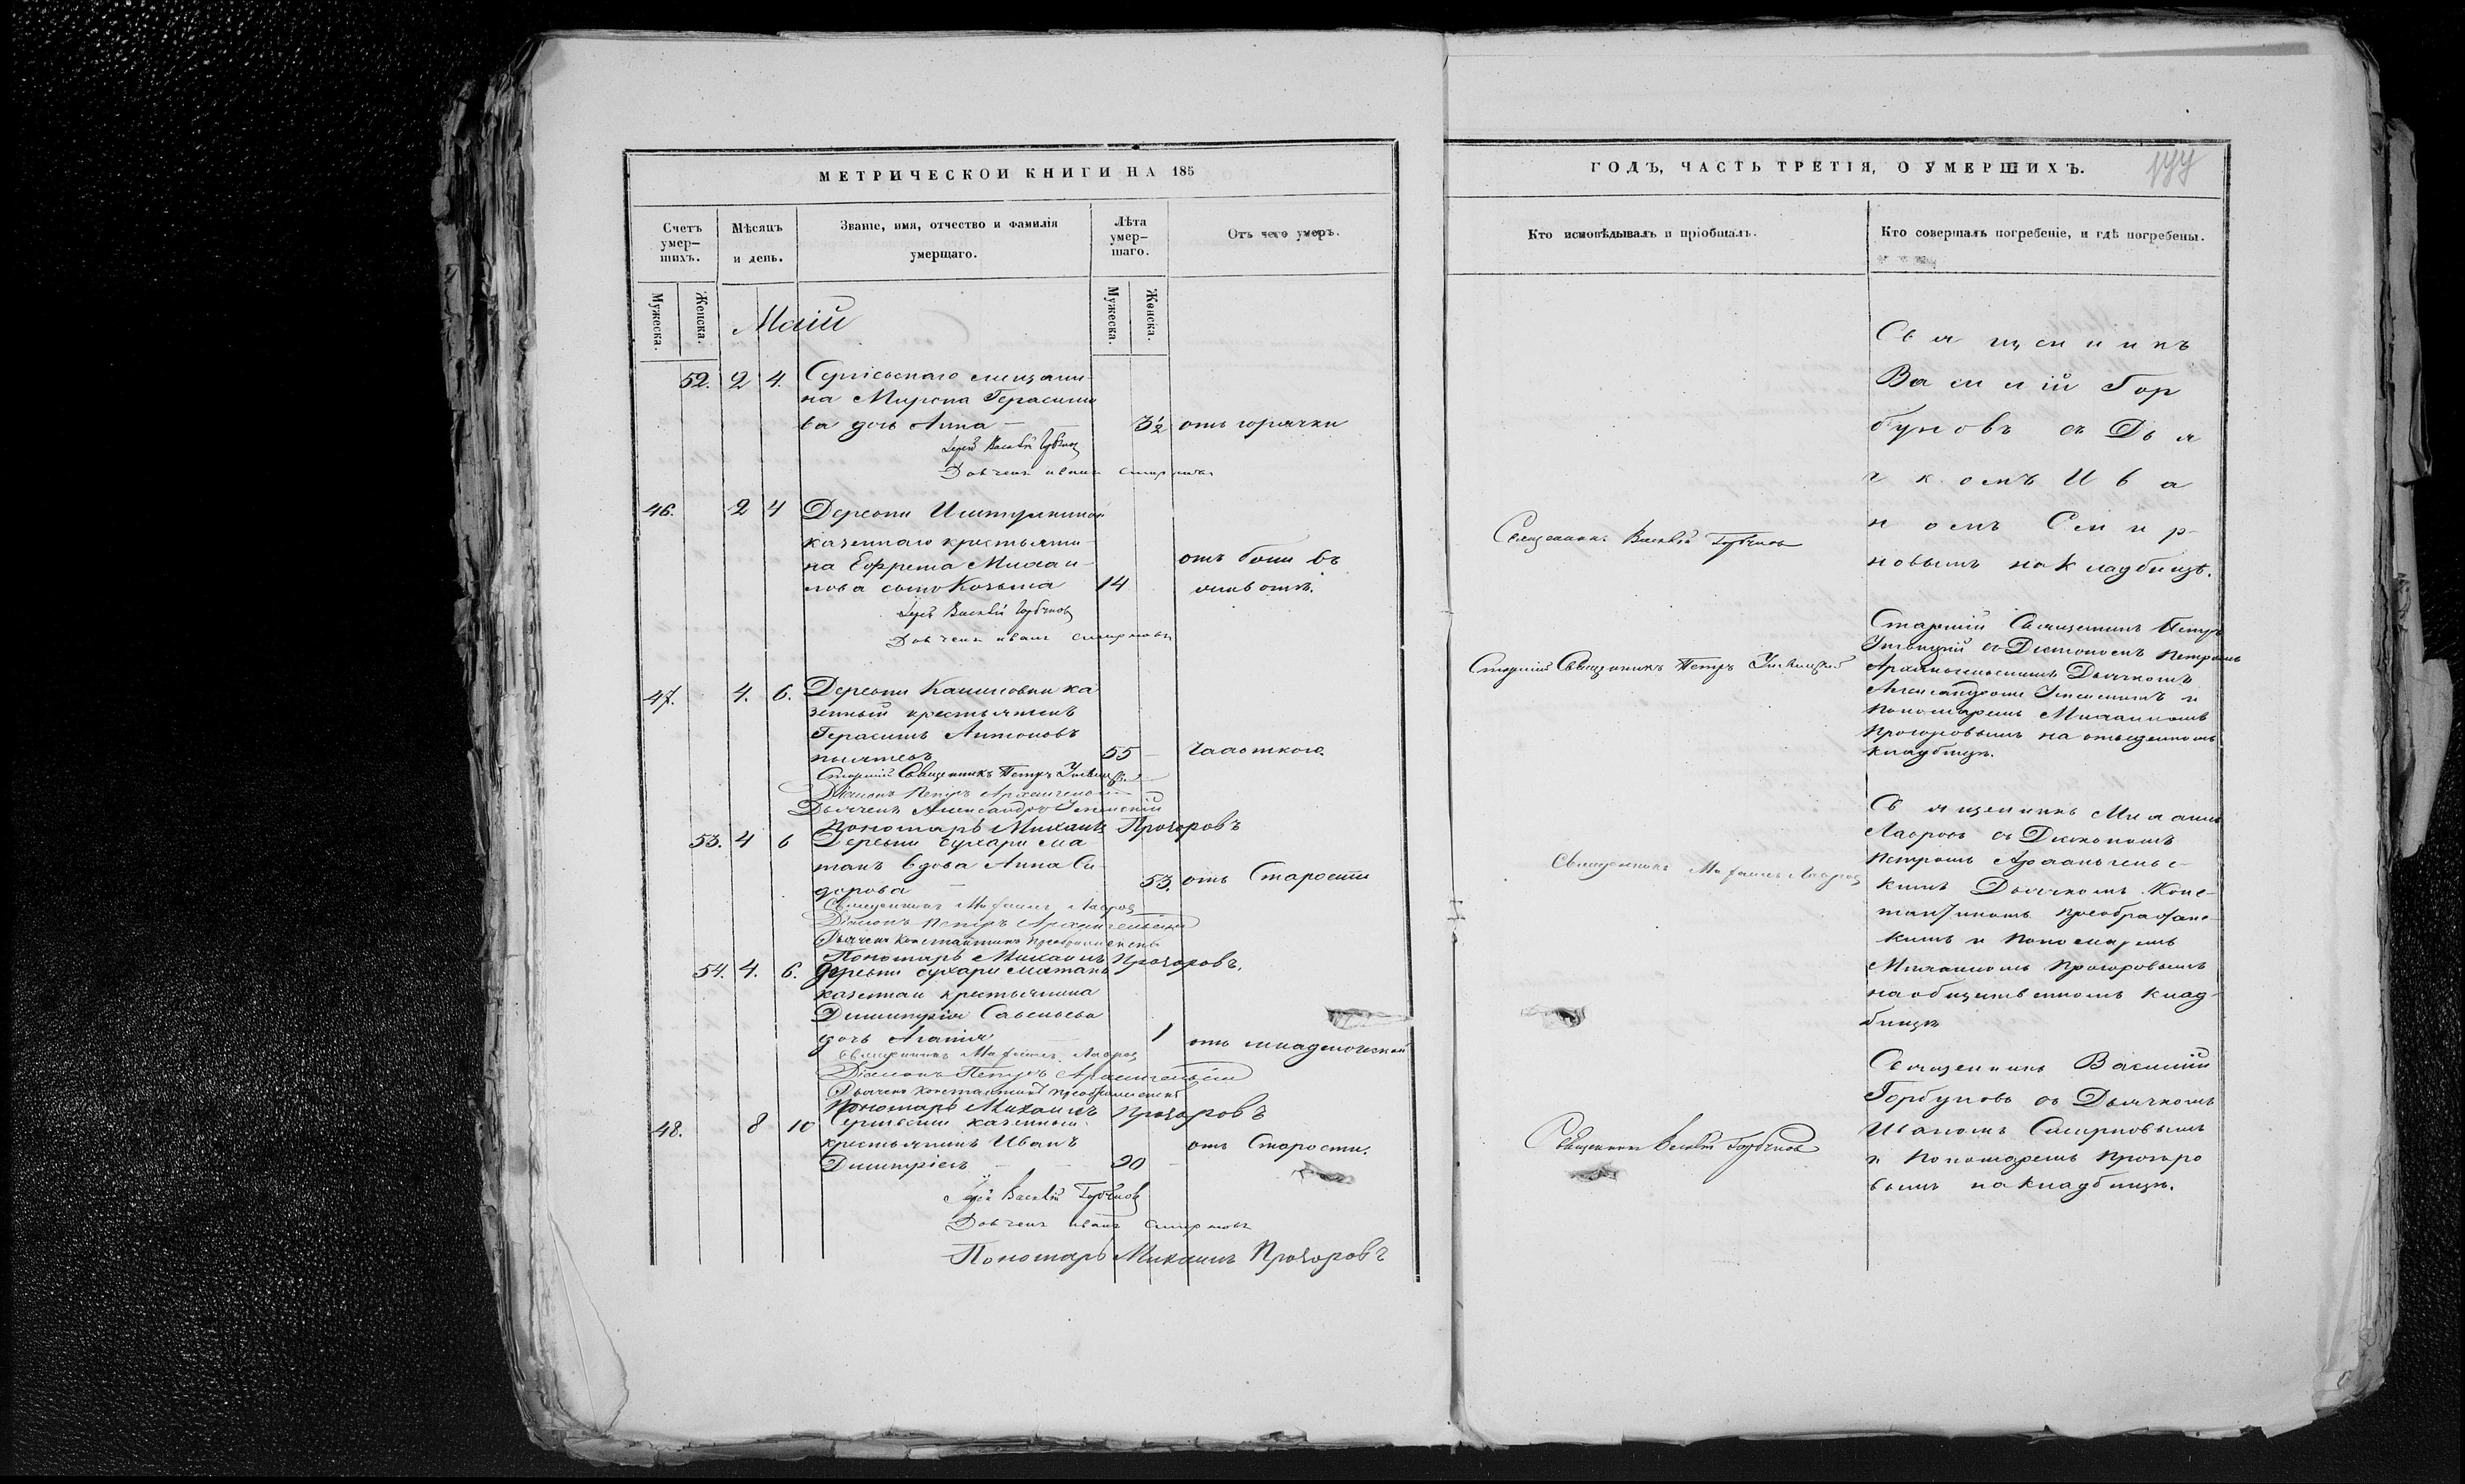 МЕТРИЧЕСКОЙ КНИГИ НА 185
Счетъ умер-
шихъ.
Мѣсяцъ
и день.
Званіе, имя, отчество и фамилія
умершаго.
Лѣта
умер-
шаго.
Отъ чего умеръ.
Мужеска.
Женска.
Мужеска.
Женска.
Маій
52. 2 4. Сергіевскаго мещани-
на Мирона Герасимо
ва дочь Анна 3½ отъ горячки
Іерей Василій Горбуновъ
Дьячекъ иванъ смирновъ
46. 2 4 Деревни Иштулкиной
казеннаго крестьяни-
на Ефрема Михаи-
лова сынъ Козьма 14 отъ боли въ
животѣ.
Іерей Василій Горбуновъ
Дьячекъ иванъ смирновъ
47. 4. 6. Деревни Калиновки ка
зенный крестьянинъ
Герасимъ Антоновъ
55 Чахоткою
Старшій Священникъ Петръ
Діаконъ Петръ Архангельскій
Дьячекъ Александръ
Пономарь Михаилъ Прохоровъ
53. 4 6 Деревни Сухари ма
танъ вдова Анна Си-
дорова 53. отъ Старости
Священникъ Михаилъ Лавровъ
Діаконъ Петръ Архангельскій
Дьячекъ Константинъ преображенскій
Пономарь Михаилъ Прохоровъ.
54. 4. 6. Деревни сухари матанъ
казеннаго крестьянина
Димитрія Савельева
дочь Агапія 1 отъ младенческой
Священникъ Михаилъ Лавровъ
Діаконъ Петръ Архангельскій
Дьячекъ Константинъ преображенскій
Пономарь Михаилъ Прохоровъ
48. 8 10 казенный
крестьянинъ Иванъ отъ Старости.
Димитріевъ 90
Іерей Василій Горбуновъ
Дьячекъ иванъ смирновъ
Пономарь Михаилъ Прохоровъ
ГОДЪ, ЧАСТЬ ТРЕТІЯ, О УМЕРШИХЪ.
Кто исповѣдывалъ и пріобщалъ.
Кто совершалъ погребеніе, и гдѣ погребены.
Священникъ
Василій Гор
буновъ съ Дья
чкомъ Ива
номъ Смир-
новымъ на Кладбищѣ.
Священникъ Василій Горбуновъ
Старшій Священникъ Петръ
Старшій Священникъ Петръ
съ Діакономъ Петромъ
Архангельскимъ Дьячкомъ
Александромъ и
Пономаремъ Михаиломъ
Прохоровымъ на отведенномъ
кладбищѣ.
Священникъ Михаилъ Лавровъ
Священникъ Михаилъ
Лавровъ съ Діакономъ
Петромъ Архангельс-
кимъ Дьячкомъ Конс-
тантиномъ преображенс-
кимъ и Пономаремъ
Михаиломъ Прохоровымъ
на общественномъ клад-
бищѣ
Священникъ Василій Горбуновъ
Священникъ Василій
Горбуновъ съ Дьячкомъ
Иваномъ Смирновымъ
и Пономаремъ Прохоро
вымъ на кладбищѣ.